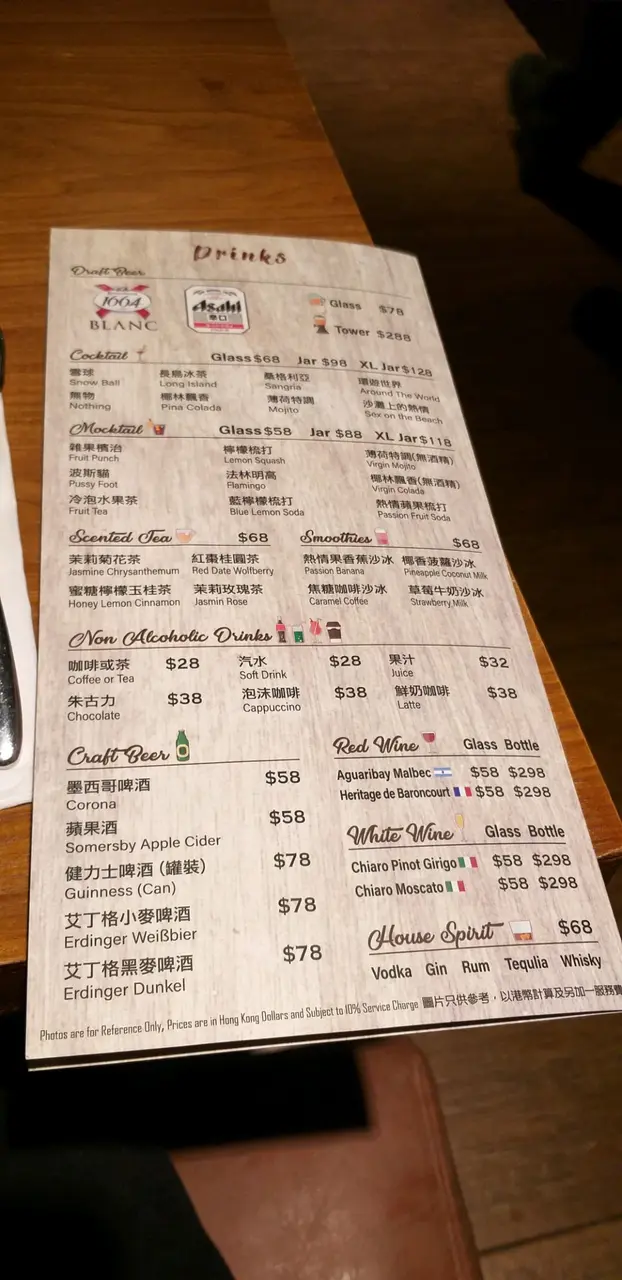 Drinks
Draft Beer
1664
BLANC
Asahi
辛口
Glass $78
Tower $288
Cocktail Glass $68 Jar $98 XL Jar $128
雪球 長島冰茶 桑格利亞 環遊世界
Snow Ball Long Island Sangria Around The World
無物 椰林飄香 薄荷特調 沙灘上的熱情
Nothing Pina Colada Mojito Sex on the Beach
Mocktail Glass $58 Jar $88 XL Jar $118
雜果賓治 檸檬梳打 薄荷特調(無酒精)
Fruit Punch Lemon Squash Virgin Mojito
波斯貓 法林明高 椰林飄香(無酒精)
Pussy Foot Flamingo Virgin Colada
冷泡水果茶 藍檸檬梳打 熱情蘋果梳打
Fruit Tea Blue Lemon Soda Passion Fruit Soda
Scented Tea $68
茉莉菊花茶 紅棗桂圓茶
Jasmine Chrysanthemum Red Date Wolfberry
蜜糖檸檬玉桂茶 茉莉玫瑰茶
Honey Lemon Cinnamon Jasmin Rose
Smoothies $68
熱情果香蕉沙冰 椰香菠蘿沙冰
Passion Banana Pineapple Coconut Milk
焦糖咖啡沙冰 草莓牛奶沙冰
Caramel Coffee Strawberry Milk
Non Alcoholic Drinks
咖啡或茶 $28 汽水 $28 果汁 $32
Coffee or Tea Soft Drink Juice
朱古力 $38 泡沫咖啡 $38 鮮奶咖啡 $38
Chocolate Cappuccino Latte
Craft Beer
墨西哥啤酒 $58
Corona
蘋果酒 $58
Somersby Apple Cider
健力士啤酒 (罐裝) $78
Guinness (Can)
艾丁格小麥啤酒 $78
Erdinger Weißbier
艾丁格黑麥啤酒 $78
Erdinger Dunkel
Red Wine Glass Bottle
Aguaribay Malbec $58 $298
Heritage de Baroncourt $58 $298
White Wine Glass Bottle
Chiaro Pinot Girigo $58 $298
Chiaro Moscato $58 $298
House Spirit $68
Vodka Gin Rum Tequlia Whisky
Photos are for Reference Only, Prices are in Hong Kong Dollars and Subject to 10% Service Charge 圖片只供參考，以港幣計算及另加一服務費